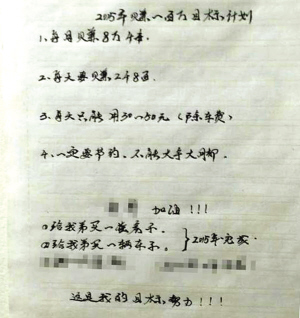 2015年赚一百万目标计划
1、每月赚8万4千.
2、每天要赚248百.
3、每天只能用30~50元（除车费）
4、一定要节约、不能大手大脚.
加油!!!
①给我弟买一
②给我弟买一辆车子。
2015年完成.
这是我的目标努力!!!